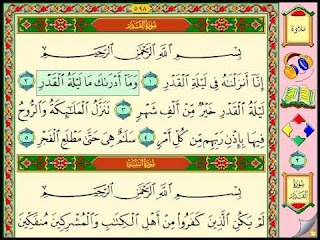 ٥٩٨
تلاوة
سُورَةُ الْقَدْرِ
بِسْمِ اللَّهِ الرَّحْمَٰنِ الرَّحِيمِ
إِنَّا أَنزَلْنَاهُ فِي لَيْلَةِ الْقَدْرِ ١ وَمَا أَدْرَاكَ مَا لَيْلَةُ الْقَدْرِ ٢
لَيْلَةُ الْقَدْرِ خَيْرٌ مِّنْ أَلْفِ شَهْرٍ ٣ تَنَزَّلُ الْمَلَائِكَةُ وَالرُّوحُ
فِيهَا بِإِذْنِ رَبِّهِم مِّن كُلِّ أَمْرٍ ٤ سَلَامٌ هِيَ حَتَّىٰ مَطْلَعِ الْفَجْرِ ٥
٢
سُورَةُ الْقَدْرِ
سُورَةُ الْبَيِّنَةِ
بِسْمِ اللَّهِ الرَّحْمَٰنِ الرَّحِيمِ
لَمْ يَكُنِ الَّذِينَ كَفَرُوا مِنْ أَهْلِ الْكِتَابِ وَالْمُشْرِكِينَ مُنفَكِّينَ